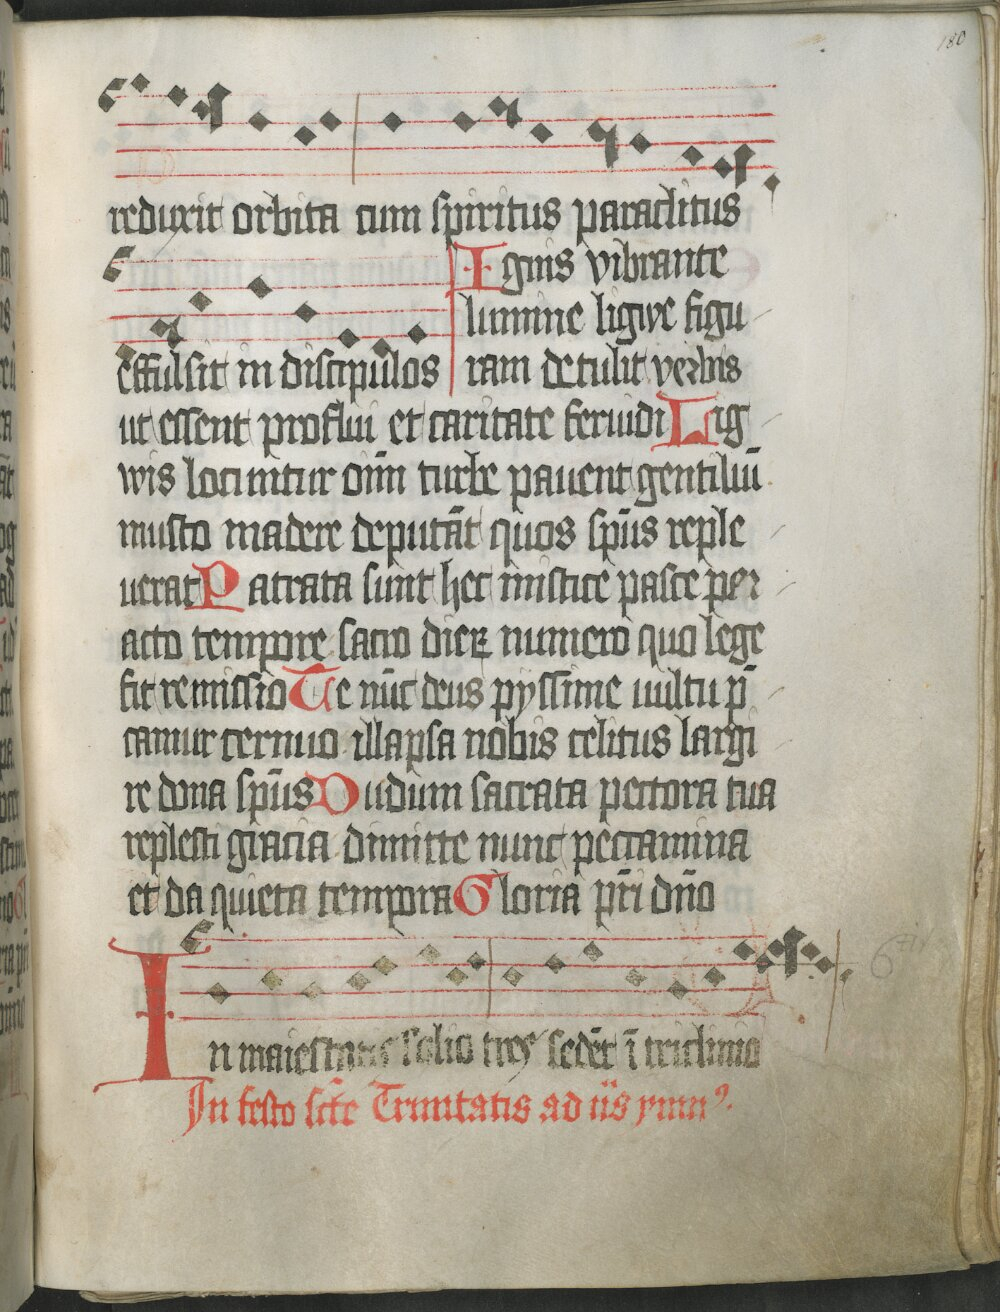 180
reduxit orbita cum spiritus paraclitus
effulsit in discipulos
Ignis vibrante
lumine ligwe figu
ram detulit verbis
ut essent proflui et caritate feruidi Lig
wis locuntur oim̄ turbe pauent gentiliū
musto madere deputāt quos sp̄us reple
uerat Patrata sunt hec mistice pasce per
acto tempore sacro dieꝝ numero quo lege
fit remissio Te nūc deus pyssime uultu p̄
camur cernuo illapsa nobis celitus largi
re dona sp̄us Dudum sacrata pectora tua
replesti gracia dimitte nunc peccamina
et da quieta tempora Gloria pr̄i dn̄o
In maiestatis solio tres sedēt ī triclinio
In festo sc̄te Trinitatis ad ii̅s ymnꝰ.
6